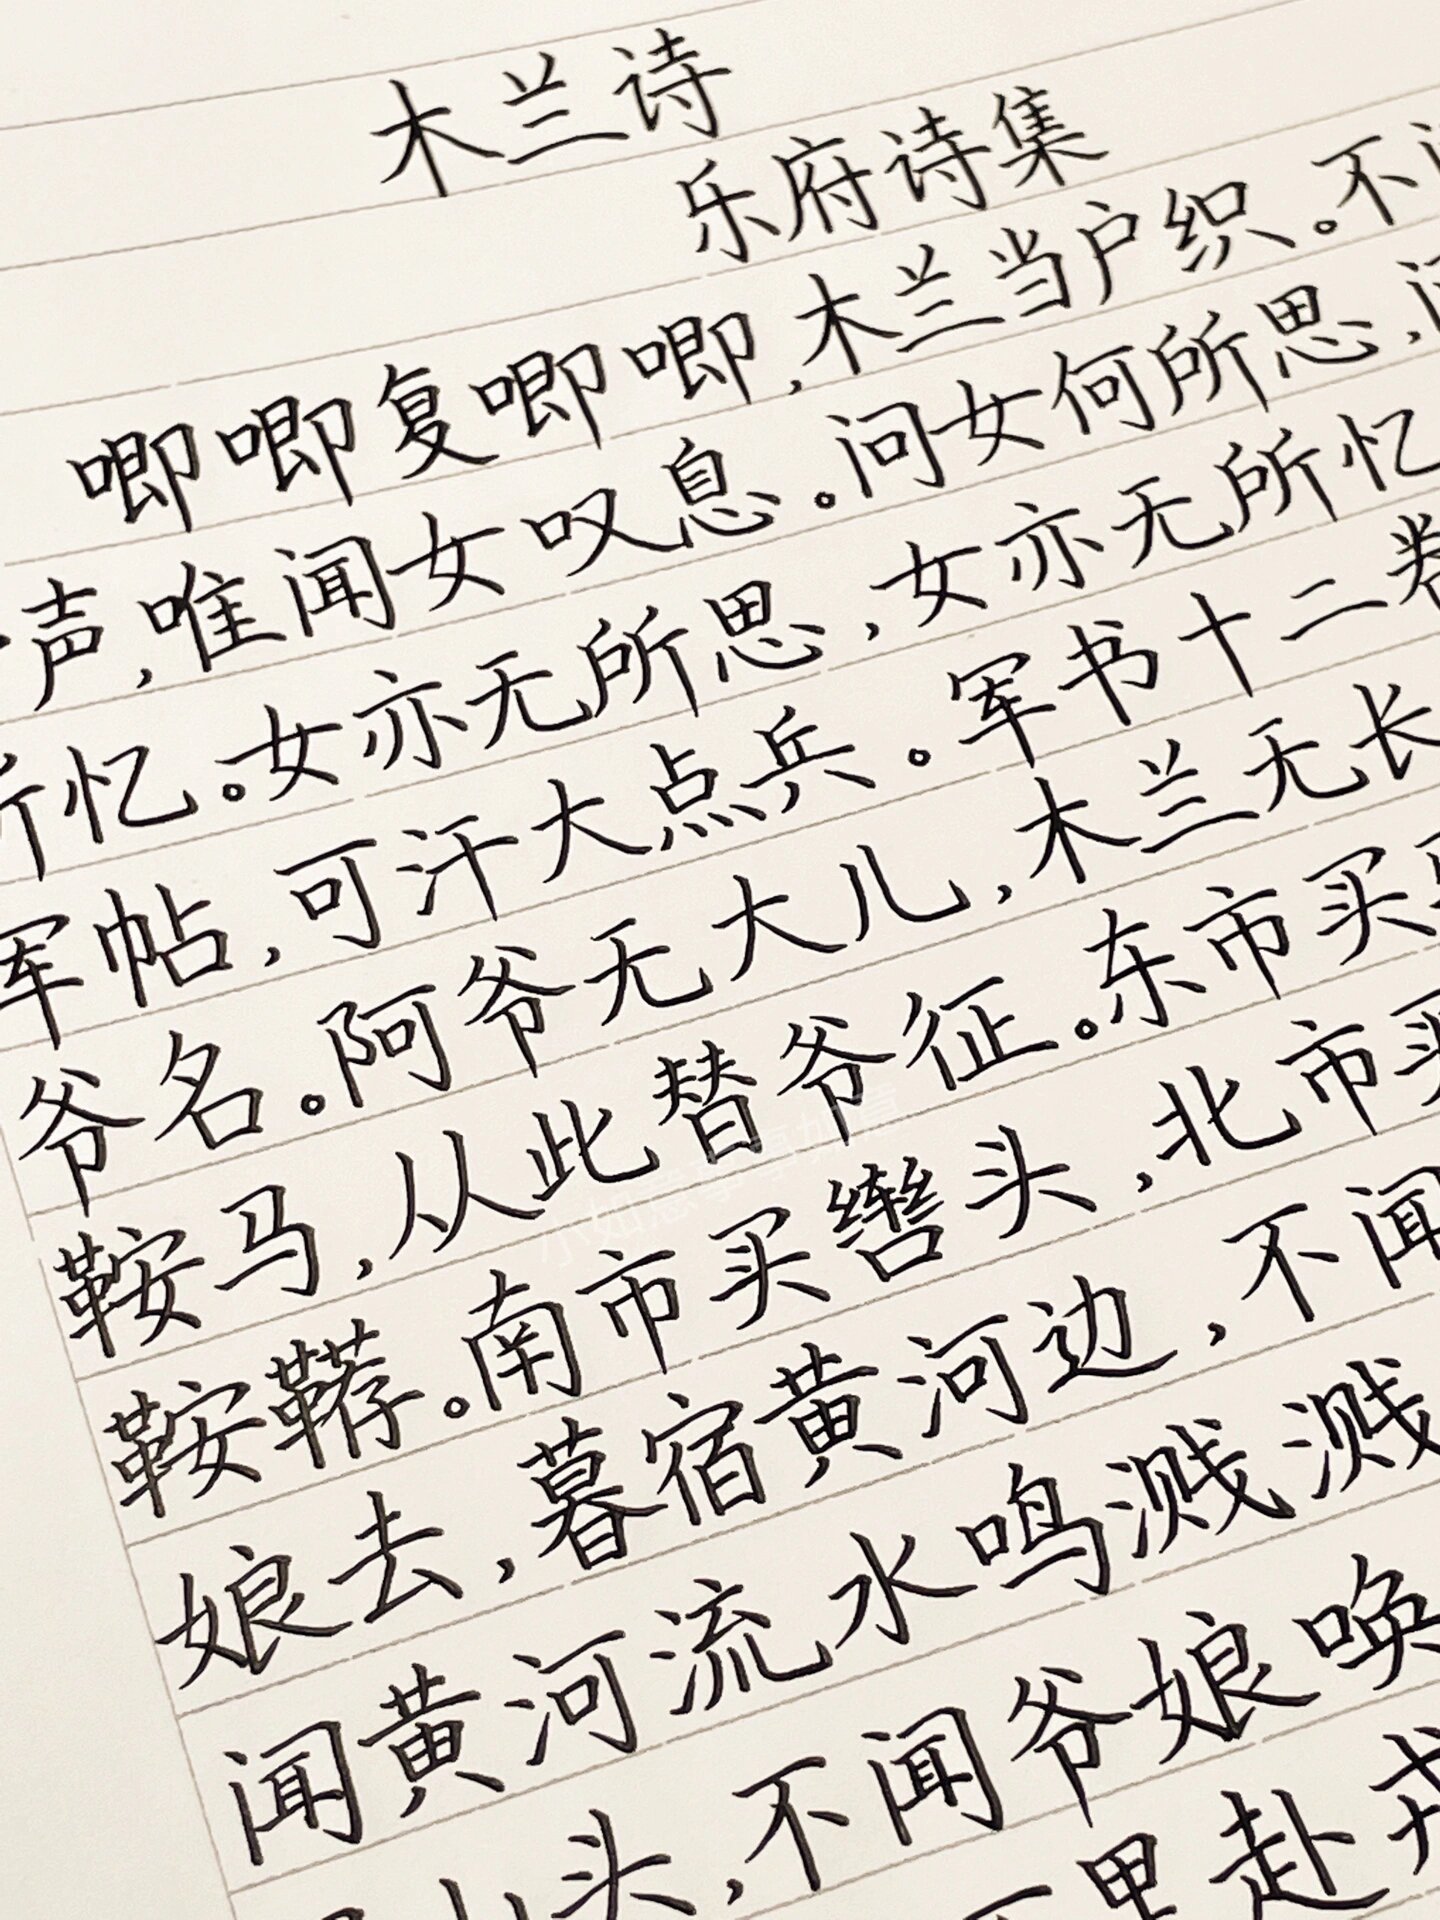 木兰诗
乐府诗集
唧唧复唧唧,木兰当户织。不
声,唯闻女叹息。问女何所思,
所忆。女亦无所思,女亦无所忆
军帖,可汗大点兵。军书十二卷
爷名。阿爷无大儿,木兰无长
鞍马,从此替爷征。东市买
鞍鞯。南市买辔头,北市买
娘去,暮宿黄河边,不闻
闻黄河流水鸣溅溅
山头,不闻爷娘唤
里赴戎
小如意事事如意